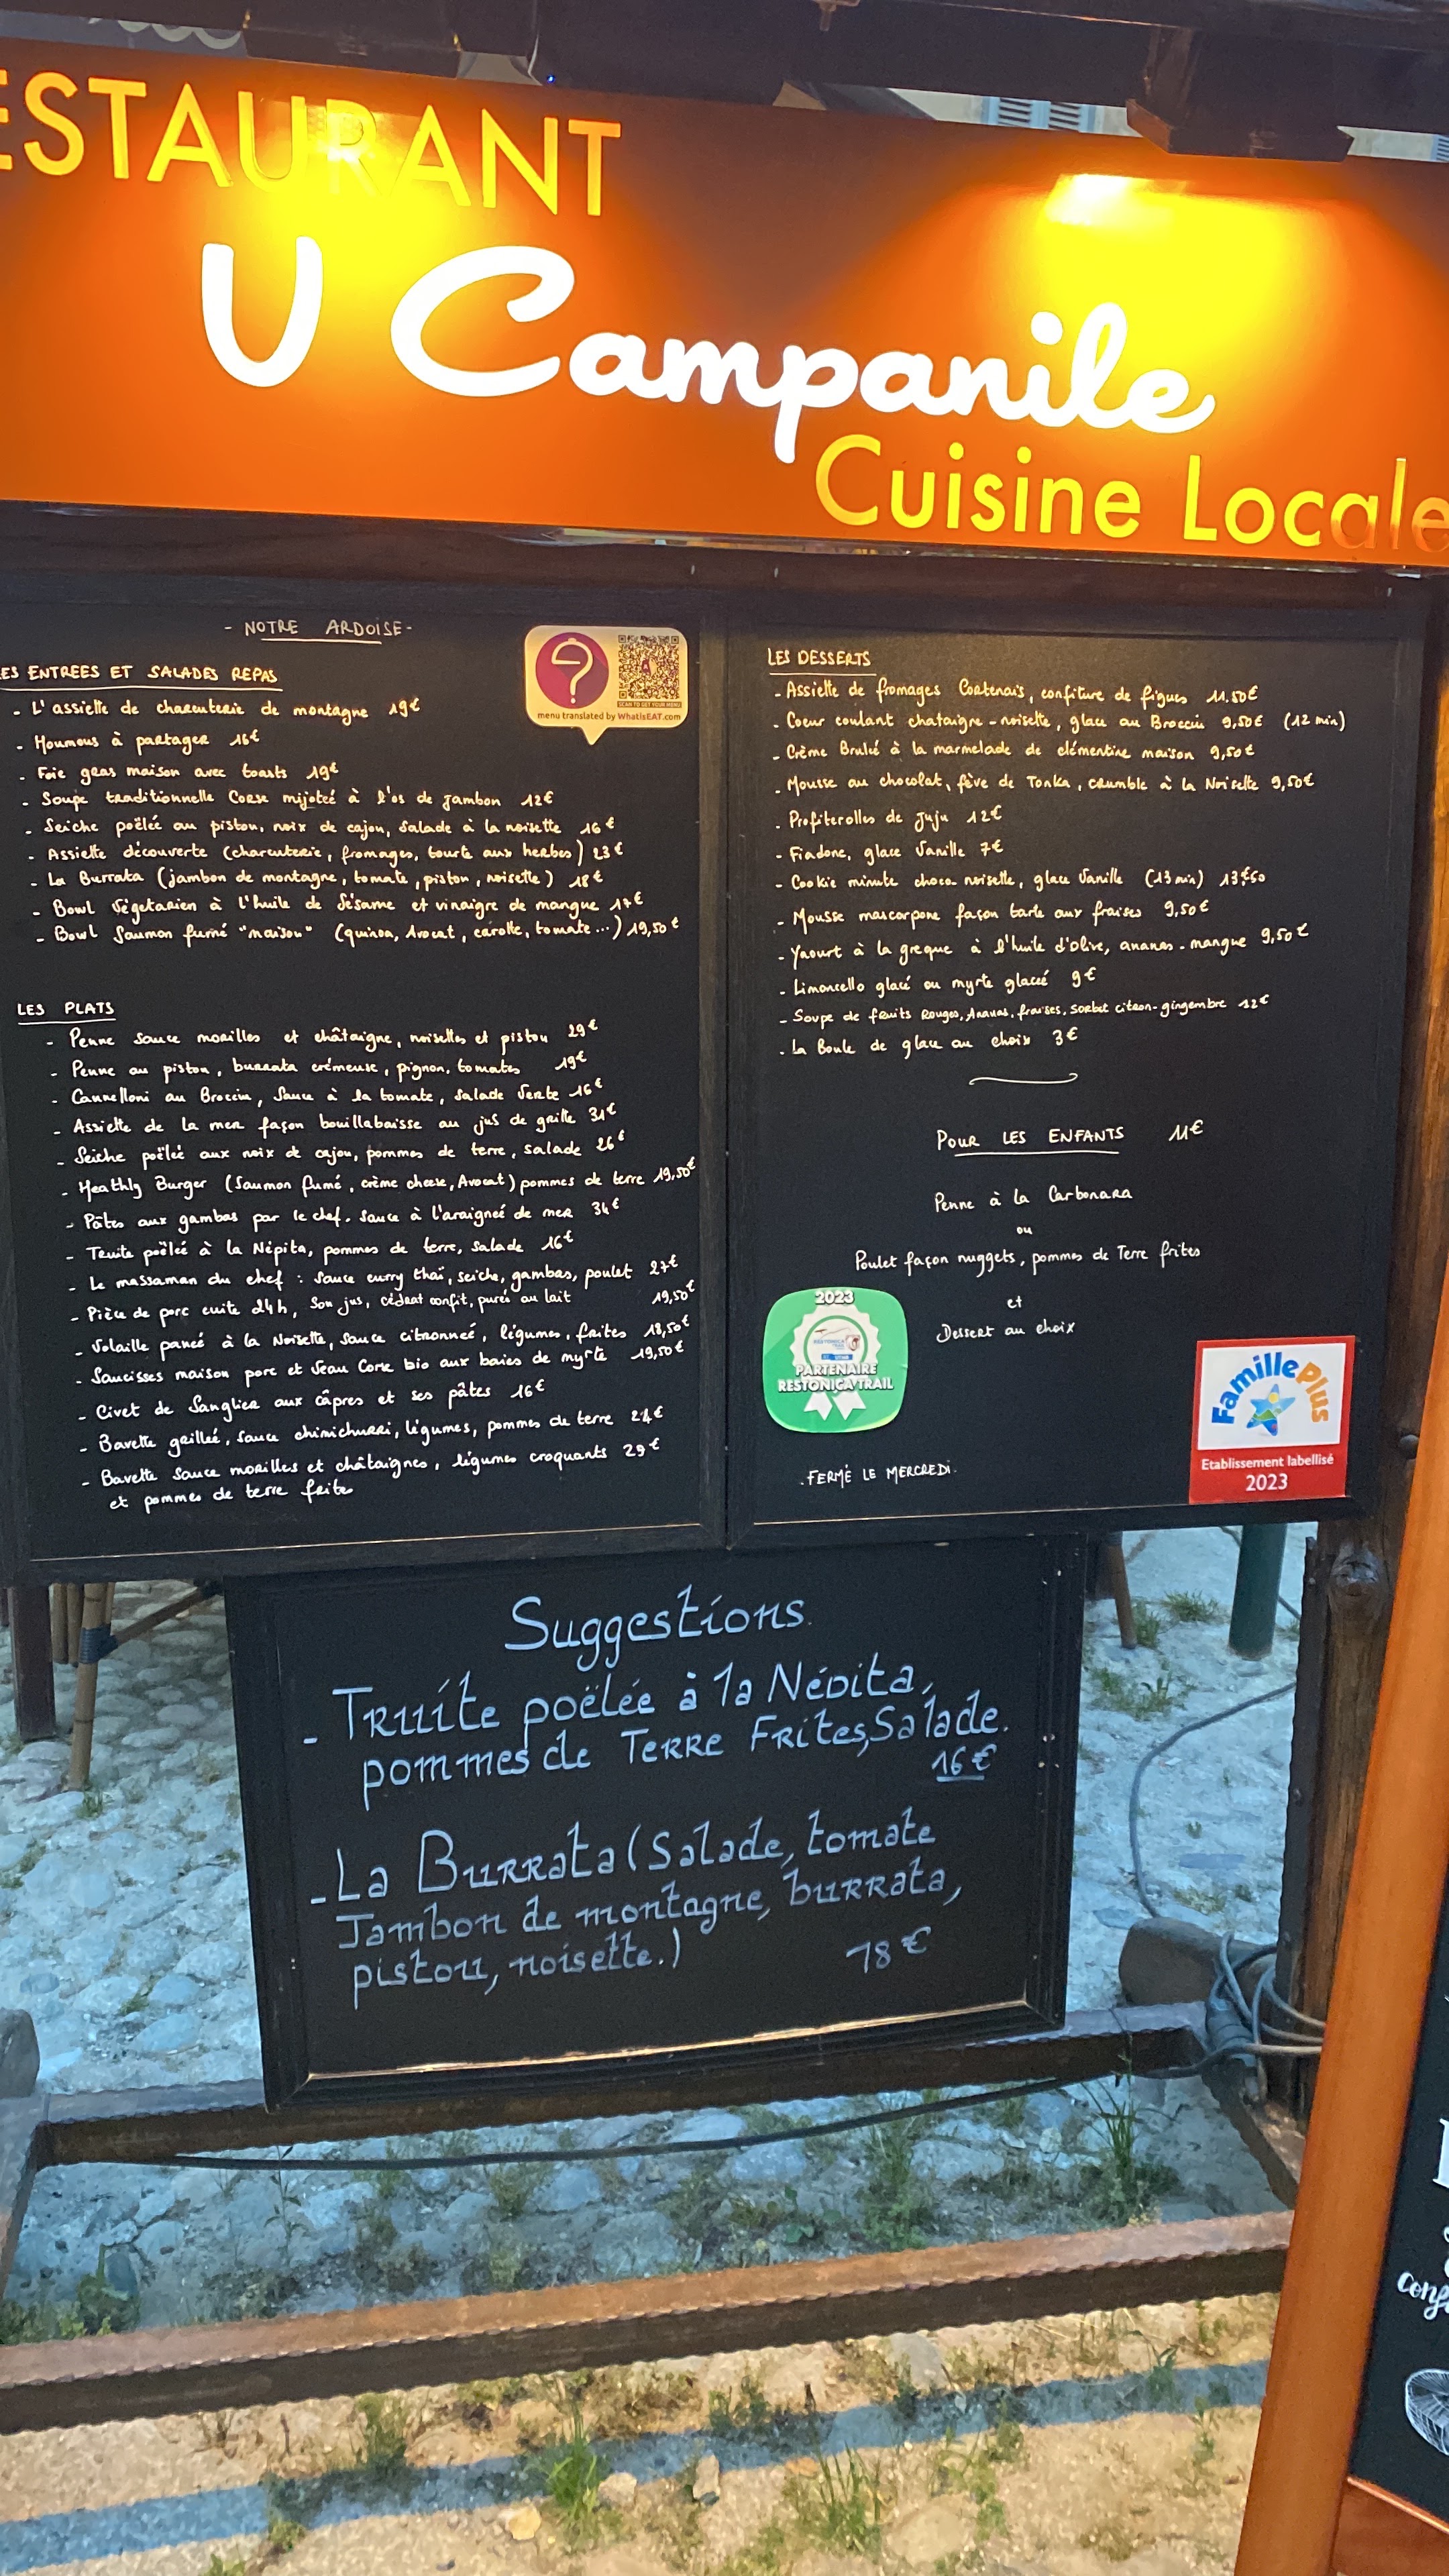 ESTAURANT
U Campanile
Cuisine Locale
- NOTRE ARDOISE -
ES ENTREES ET SALADES REPAS
- L'assiette de charcuterie de montagne 19€
- Houmous à partager 16€
- Foie gras maison avec toasts 19€
- Soupe traditionnelle Corse mijoteé à l'os de jambon 12€
- Seiche poëlée au pistou, noix de cajou, salade à la noisette 16€
- Assiette découverte (charcuterie, fromages, tourte aux herbes) 23€
- La Burrata (jambon de montagne, tomate, pistou, noisette) 18€
- Bowl Végetarien à l'huile de Sésame et vinaigre de mangue 17€
- Bowl Saumon fumé "maison" (quinoa, Avocat, carotte, tomate...) 19,50€
LES PLATS
- Penne sauce morilles et châtaigne, noisettes et pistou 29€
- Penne au pistou, burrata crémeuse, pignon, tomates 19€
- Cannelloni au Brocciu, Sauce à la tomate, salade Verte 16€
- Assiette de la mer façon bouillabaisse au jus de grille 31€
- Seiche poëlée aux noix de cajou, pommes de terre, salade 26€
- Heathly Burger (Saumon fumé, crème cheese, Avocat) pommes de terre 19,50€
- Pâtes aux gambas par le chef. Sauce à l'araigneé de mer 34€
- Truite poëleé à la Népita, pommes de terre, salade 16€
- Le massaman du chef : sauce curry thaï, seiche, gambas, poulet 27€
- Pièce de porc cuite 24h, Son jus, cédrat confit, pureé au lait 19,50€
- Volaille paneé à la Noisette, sauce citronneé, légumes, frites 18,50€
- Saucisses maison porc et Veau Corse bio aux baies de myrte 19,50€
- Civet de Sanglier aux câpres et ses pâtes 16€
- Bavette grilleé, sauce chimichurri, légumes, pommes de terre 24€
- Bavette sauce morilles et châtaignes, légumes croquants 29€
et pommes de terre frites
SCAN TO GET YOUR MENU
menu translated by WhatisEAT.com
LES DESSERTS
- Assiette de fromages Cortenais, confiture de figues 11.50€
- Coeur coulant chataigne-noisette, glace au Brocciu 9,50€ (12 min)
- Crème Bruleé à la marmelade de clémentine maison 9,50€
- Mousse au chocolat, fève de Tonka, crumble à la Noisette 9,50€
- Profiterolles de Juju 12€
- Fiadone, glace Vanille 7€
- Cookie minute choco noisette, glace Vanille (13 min) 13€50
- Mousse mascarpone façon tarte aux fraises 9,50€
- Yaourt à la greque à l'huile d'olive, ananas-mangue 9,50€
- Limoncello glacé ou myrte glaceé 9€
- Soupe de fruits Rouges, Ananas, fraises, sorbet citron-gingembre 12€
- La Boule de glace au choix 3€
POUR LES ENFANTS 11€
Penne à la Carbonara
ou
Poulet façon nuggets, pommes de Terre frites
et
Dessert au choix
2023
PARTENAIRE
RESTONICA TRAIL
FamillePlus
Etablissement labellisé
2023
.FERMÉ LE MERCREDI.
Suggestions.
- Truite poëlée à la Népita,
pommes de Terre Frites, Salade.
16€
- La Burrata (Salade, tomate
Jambon de montagne, burrata,
pistou, noisette.) 18€